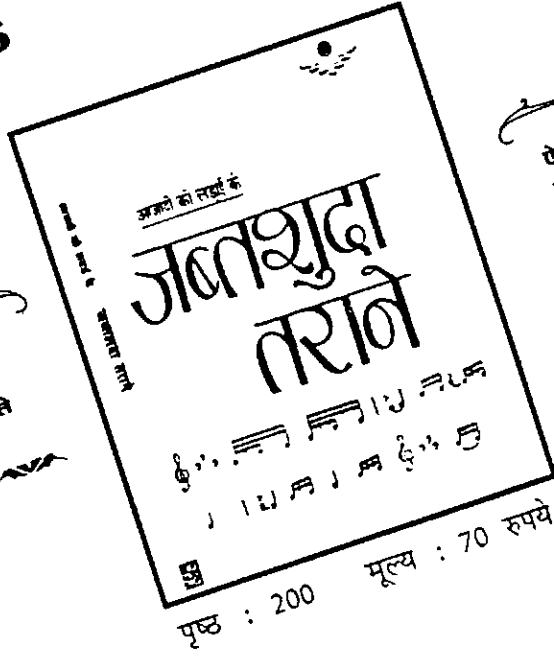 आज़ादी की लड़ाई के
जब्तशुदा
तराने
पृष्ठ : 200 मूल्य : 70 रुपये